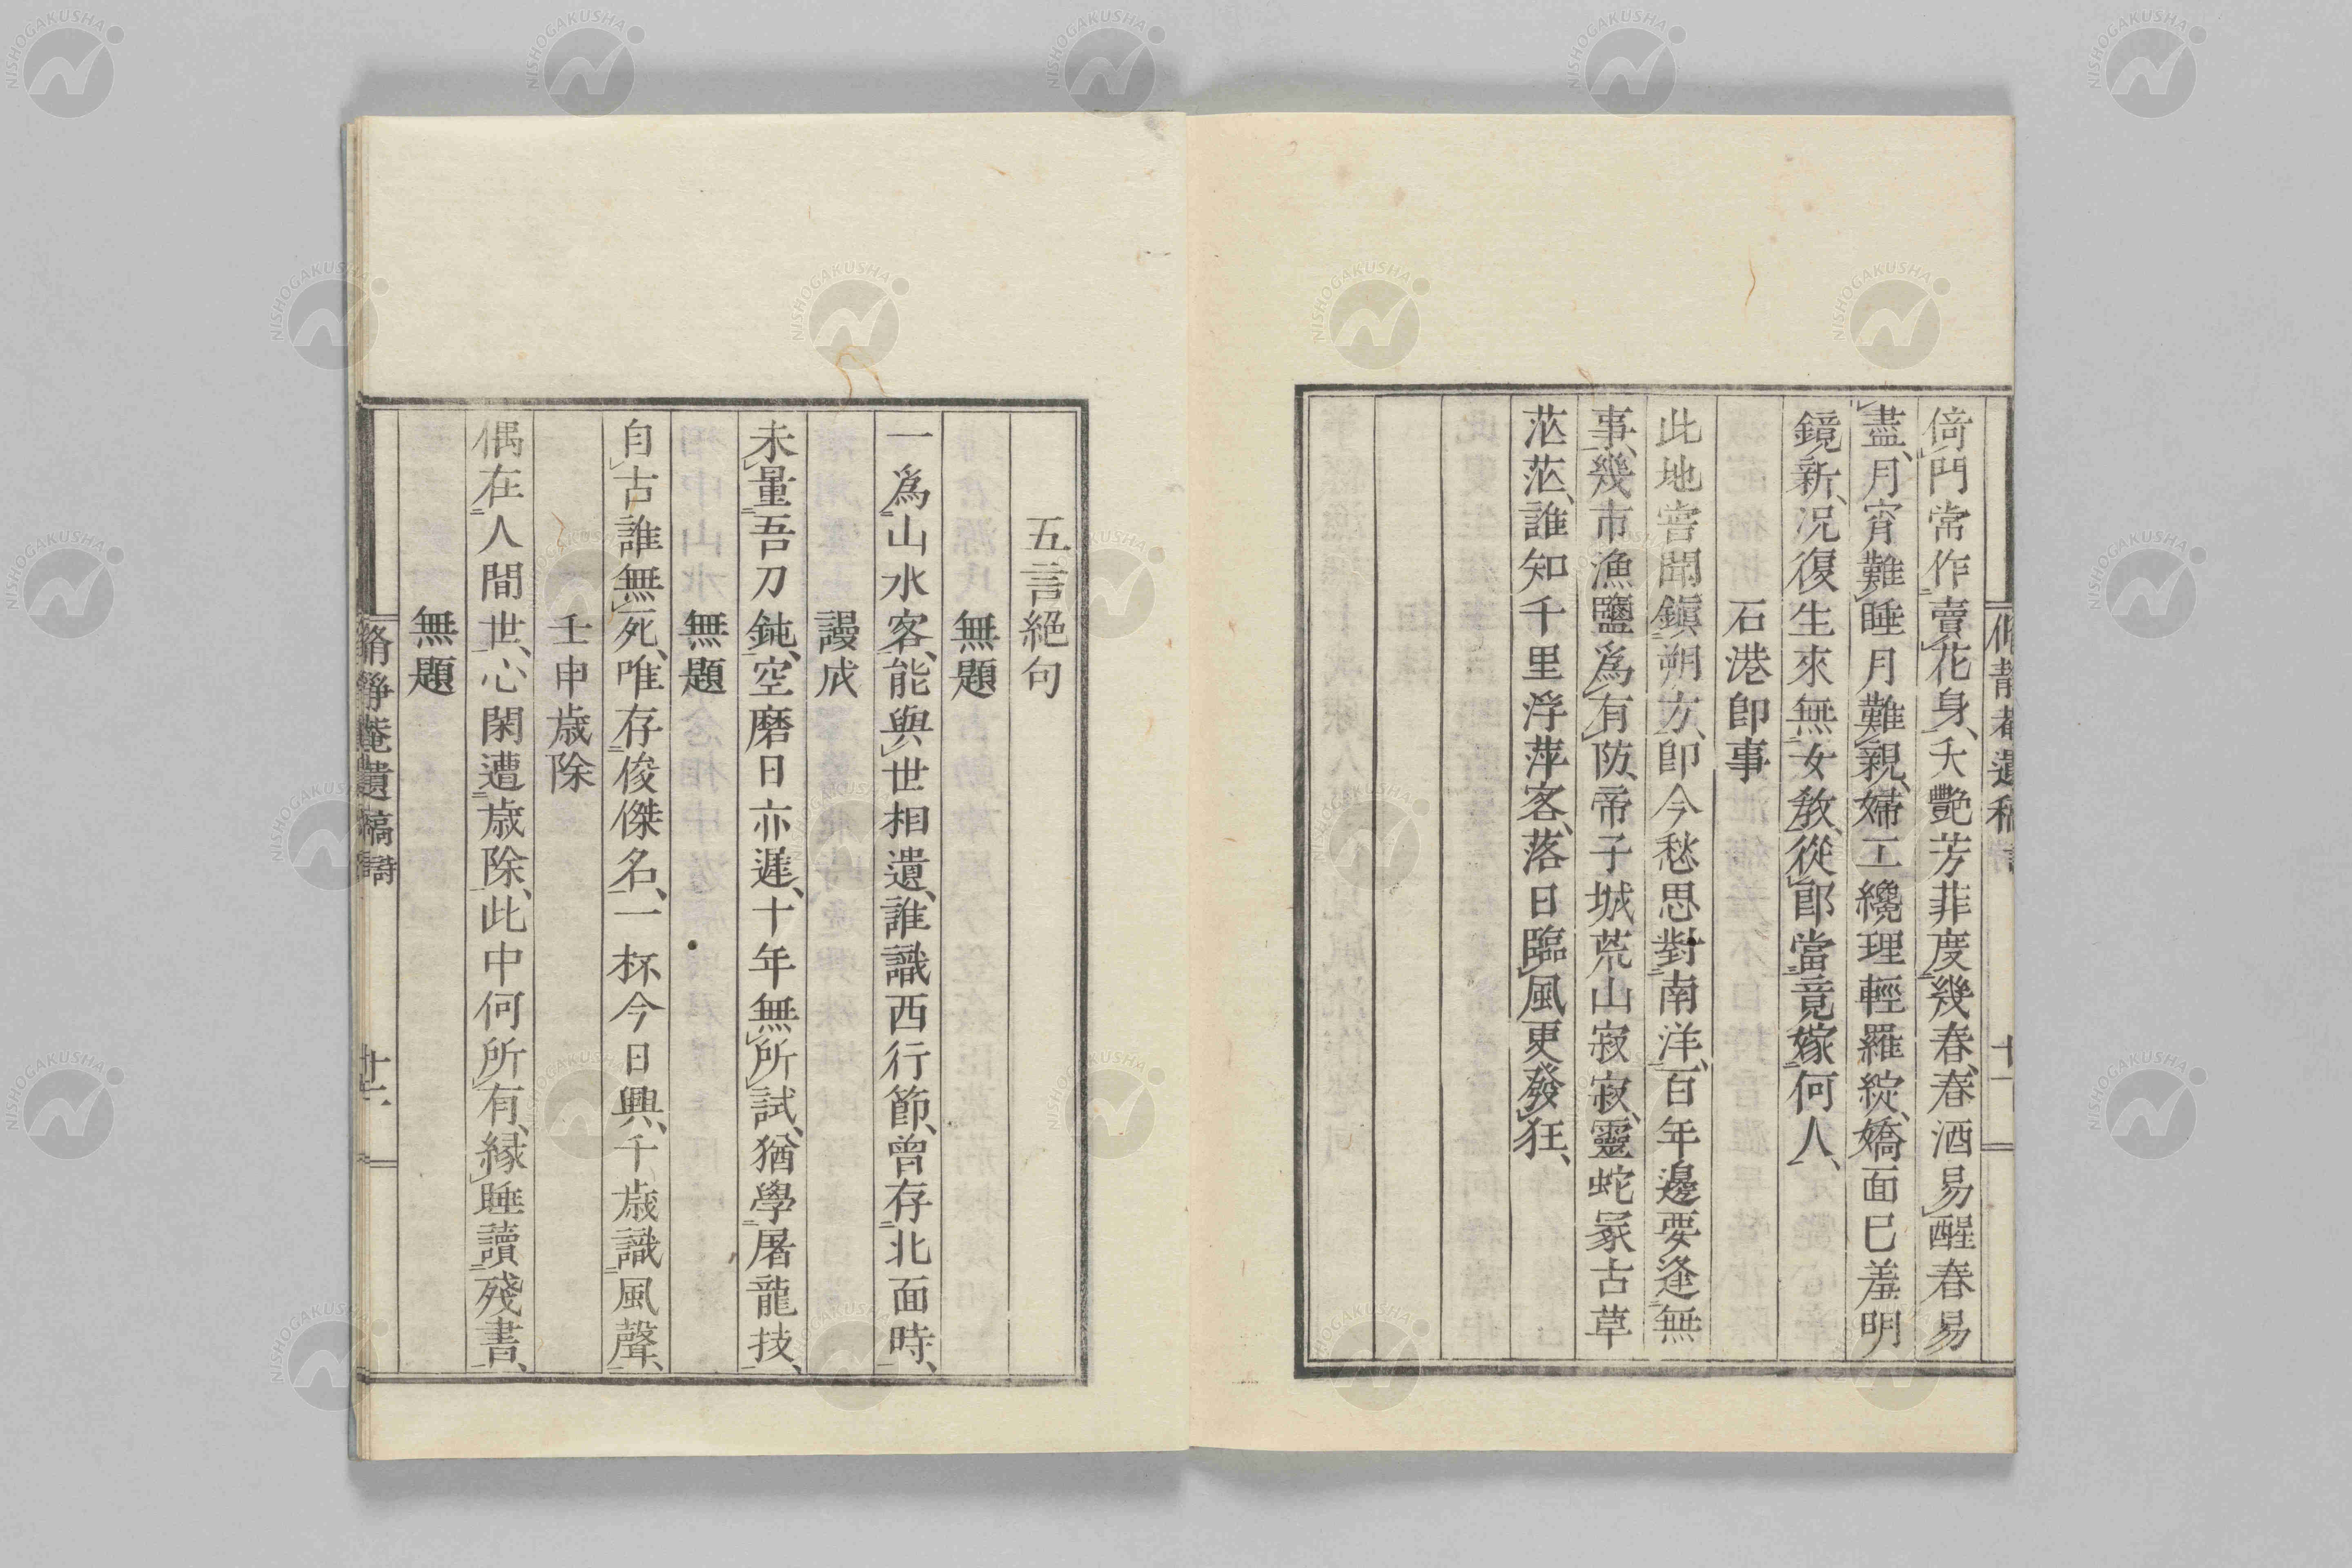 倚門常作賣花身、夭艷芳菲度幾春、春酒易醒春易
盡、月宵難睡月難親、婦工纔理輕羅綻、嬌面已羞明
鏡新、况復生來無女教、從郎當竟嫁何人、
石港即事
此地嘗聞鎭朔方、即今愁思對南洋、百年邊要逢無
事、幾市漁鹽爲有防、帝子城荒山寂寂、靈蛇冢古草
茫茫、誰知千里浮萍客、落日臨風更發狂、
五言絕句
無題
一爲山水客、能與世相遺、誰識西行節、曾存北面時、
謾成
未量吾刀鈍、空磨日亦遲、十年無所試、猶學屠龍技、
無題
自古誰無死、唯存俊傑名、一杯今日興、千歲識風聲、
壬申歲除
偶在人間世、心閑遭歲除、此中何所有、緣睡讀殘書、
無題
脩靜菴遺稿 詩
十二
NISHOGAKUSHA